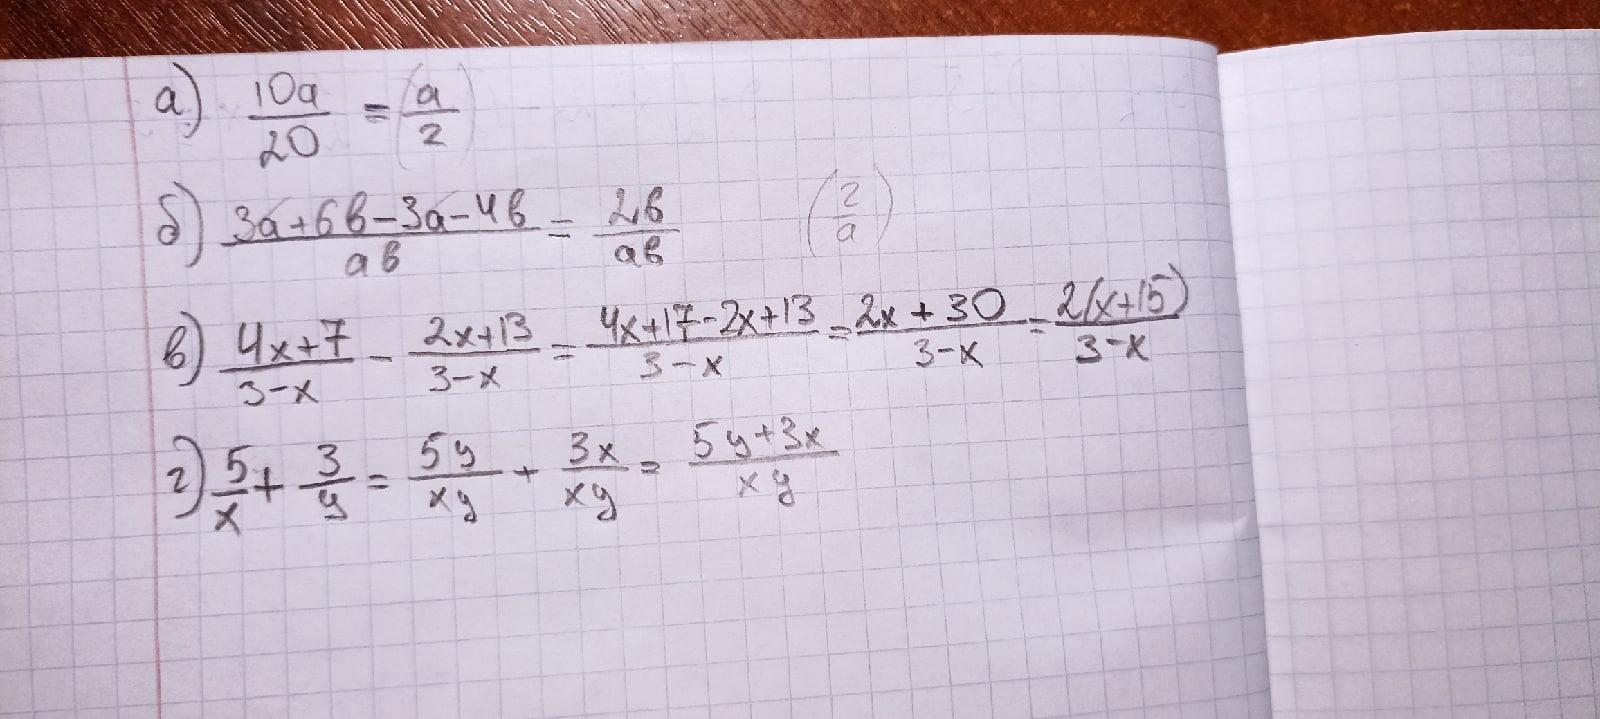 а) 10a/20 = (a/2)
б) (3a+6b-3a-4b)/ab = 2b/ab (2/a)
в) (4x+7)/(3-x) - (2x+13)/(3-x) = (4x+17-2x+13)/(3-x) = (2x+30)/(3-x) = 2(x+15)/(3-x)
г) 5/x + 3/y = 5y/xy + 3x/xy = (5y+3x)/xy